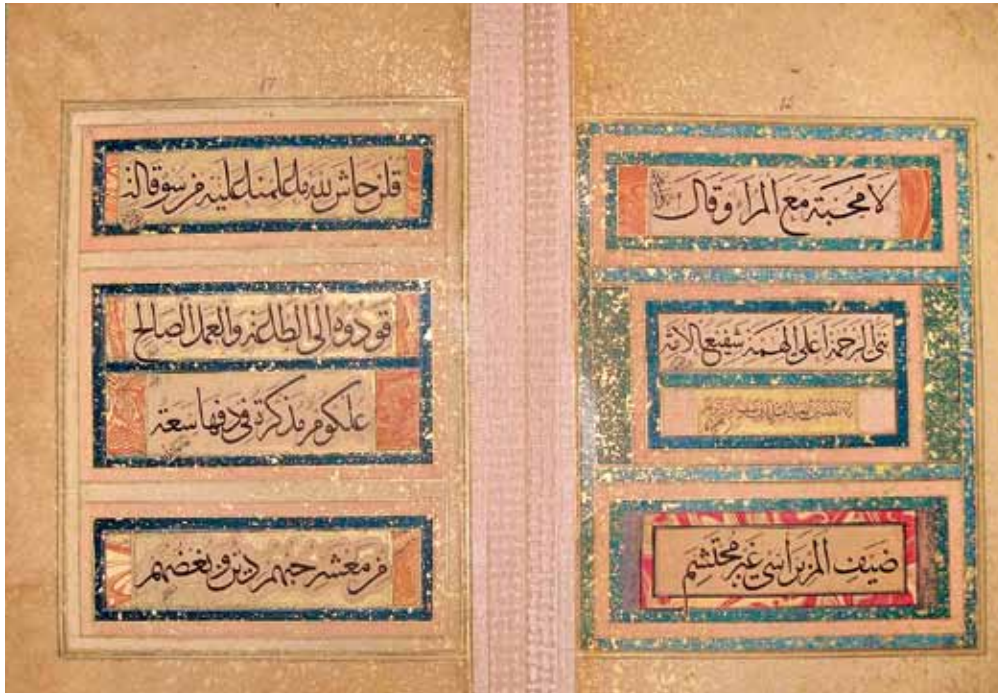 16
لا محبة مع المراء وقال
نبي الرحمة اعلى الهمة شفيع الامة
ضيف الم براسي غير محتشم
17
قلن حاش لله ما علمنا عليه من سوء قالت
قودوه الى الطاعة والعمل الصالح
علكوم مذكرة في دفها سعة
من معشر حبهم دين وبغضهم